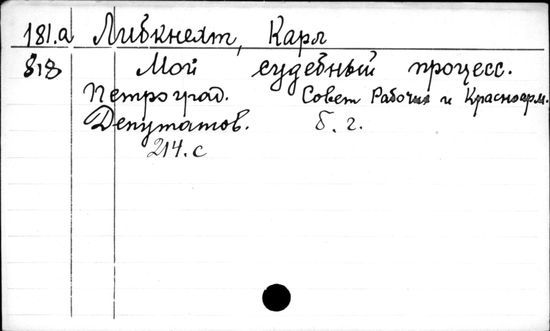 181.а Либкнехт, Карл
818 Мой судебный процесс.
Петроград. Совет Рабочих и Красноарм.
Депутатов. б. г.
214.с